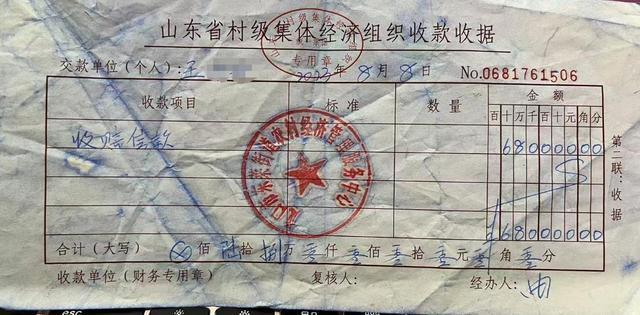 山东省村级集体经济组织收款收据
专用章
交款单位(个人):王
2023年8月8日
No.0681761506
收款项目 标准 数量 金额
百十万千百十元角分
收赔偿款 68000000
68000000
合计(大写) ⊗佰陆拾捌万零仟零佰零拾零元零角零分
收款单位(财务专用章) 复核人: 经办人:
第二联:收据